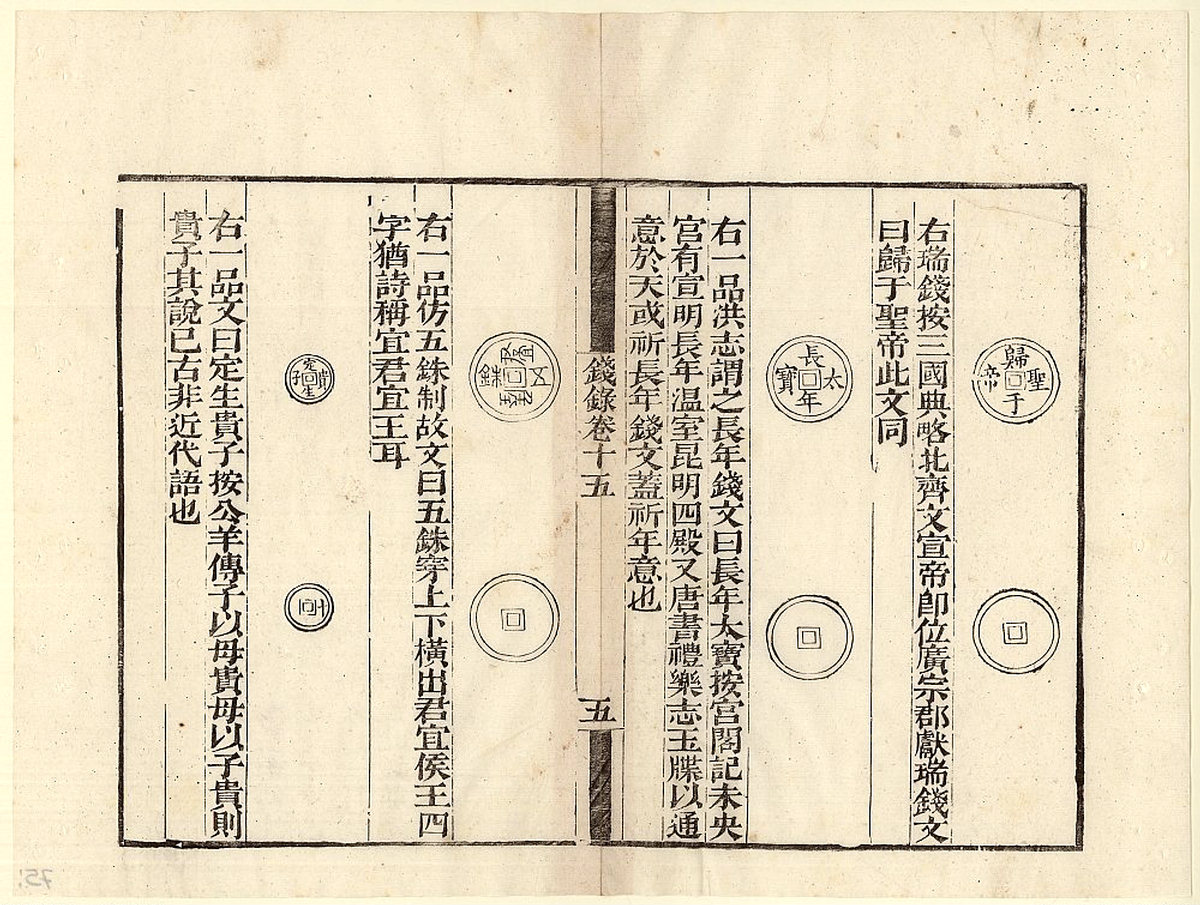 歸于聖帝
右瑞錢按三國典略北齊文宣帝卽位廣宗郡獻瑞錢文
曰歸于聖帝此文同
長年太寶
右一品洪志謂之長年錢文曰長年太寶按宮閣記未央
宮有宣明長年温室昆明四殿又唐書禮樂志玉牒以通
意於天或祈長年錢文蓋祈年意也
錢錄卷十五
五
五銖
右一品仿五銖制故文曰五銖穿上下橫出君宜侯王四
字猶詩稱宜君宜王耳
定生貴子
右一品文曰定生貴子按公羊傳子以母貴母以子貴則
貴子其說已古非近代語也